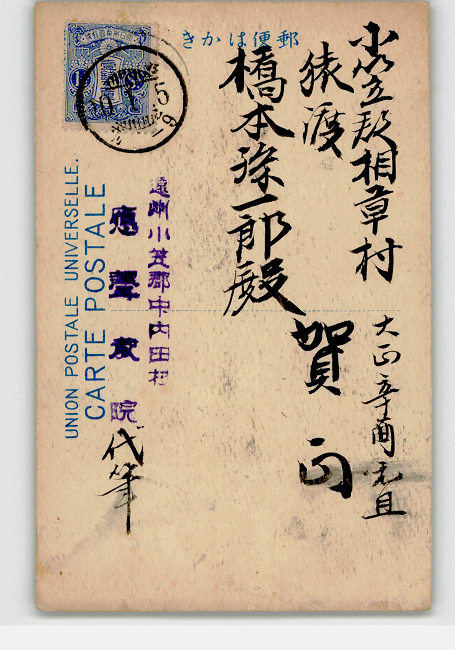 きかは便郵
小笠郡相草村
猿渡
橋本孫一郎殿
賀正
大正辛酉元旦
遠州小笠郡中内田村
應聲教院
代筆
UNION POSTALE UNIVERSELLE.
CARTE POSTALE